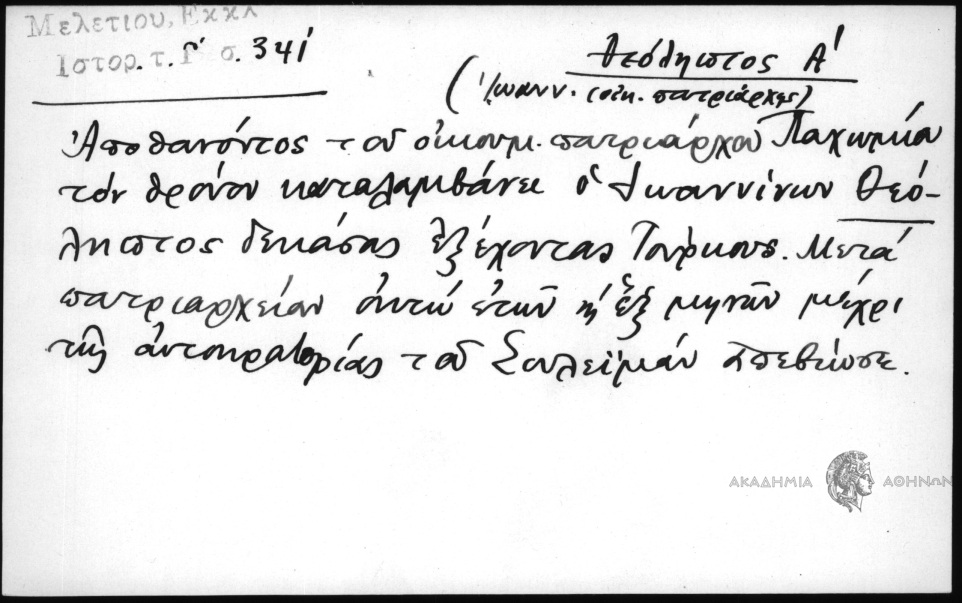 Μελετίου, Εκκλ
Ιστορ. τ. Γ΄ σ. 341
Θεόληπτος Α΄
(Ἰωανν. (οἰκ. πατριάρχης)
Ἀποθανόντος τοῦ οἰκουμ. πατριάρχου Παχωμίου
τόν θρόνον καταλαμβάνει ὁ Ἰωαννίνων Θεό-
ληπτος δεκάσας ἐξέχοντας Τούρκους. Μετά
πατριαρχείαν ὀκτώ ἐτῶν κ' ἕξ μηνῶν μέχρι
τῆς αὐτοκρατορίας τοῦ Σουλεϊμάν ἀπεβίωσε.
ΑΚΑΔΗΜΙΑ ΑΘΗΝΩΝ